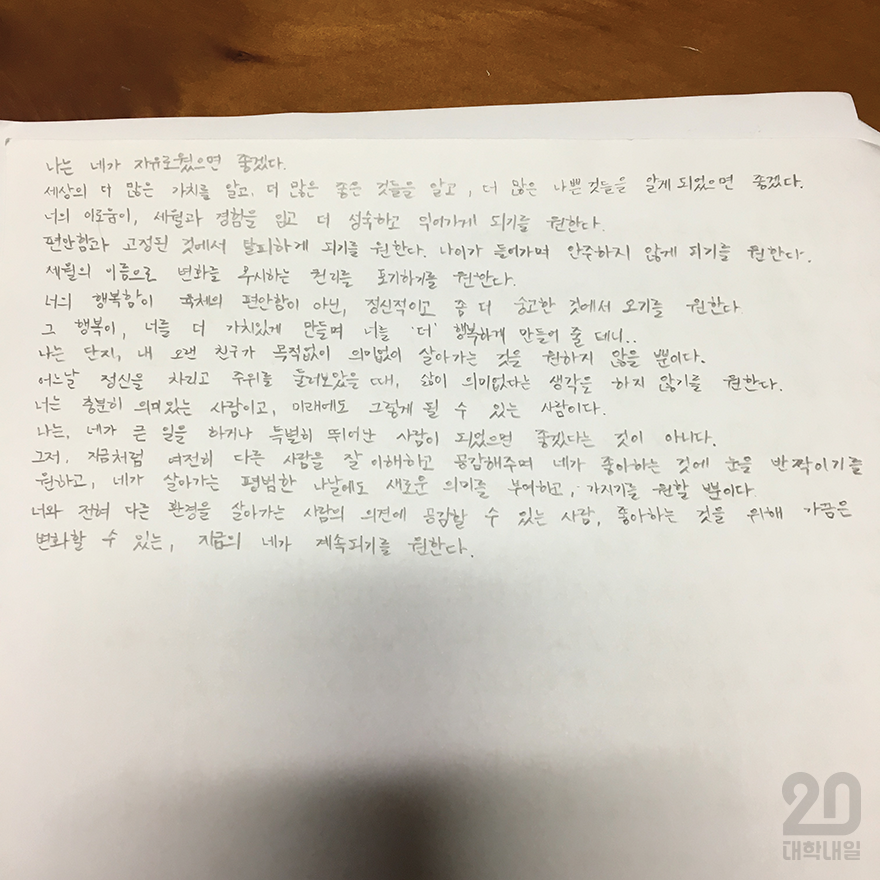 나는 네가 자유로웠으면 좋겠다.
세상의 더 많은 가치를 알고. 더 많은 좋은 것들을 알고, 더 많은 나쁜 것들을 알게 되었으면 좋겠다.
너의 이로움이, 세월과 경험을 입고 더 성숙하고 익어가게 되기를 원한다.
편안함과 고정된 것에서 탈피하게 되기를 원한다. 나이가 들어가며 안주하지 않게 되기를 원한다.
세월의 이름으로 변화를 무시하는 권리를 포기하기를 원한다.
너의 행복함이 육체의 편안함이 아닌, 정신적이고 좀 더 숭고한 것에서 오기를 원한다
그 행복이, 너를 더 가치있게 만들며 너를 '더' 행복하게 만들어 줄 테니..
나는 단지, 내 오랜 친구가 목적없이 의미없이 살아가는 것을 원하지 않을 뿐이다.
어느날 정신을 차리고 주위를 둘러보았을 때, 삶이 의미없다는 생각을 하지 않기를 원한다.
너는 충분히 의미있는 사람이고, 미래에도 그렇게 될 수 있는 사람이다.
나는, 네가 큰 일을 하거나 특별히 뛰어난 사람이 되었으면 좋겠다는 것이 아니다.
그저, 지금처럼 여전히 다른 사람을 잘 이해하고 공감해주며 네가 좋아하는 것에 눈을 반짝이기를
원하고, 네가 살아가는 평범한 나날에도 새로운 의미를 부여하고, 가지기를 원할 뿐이다.
너와 전혀 다른 환경을 살아가는 사람의 의견에 공감할 수 있는 사람, 좋아하는 것을 위해 가끔은
변화할 수 있는, 지금의 네가 계속되기를 원한다.
20
대학내일